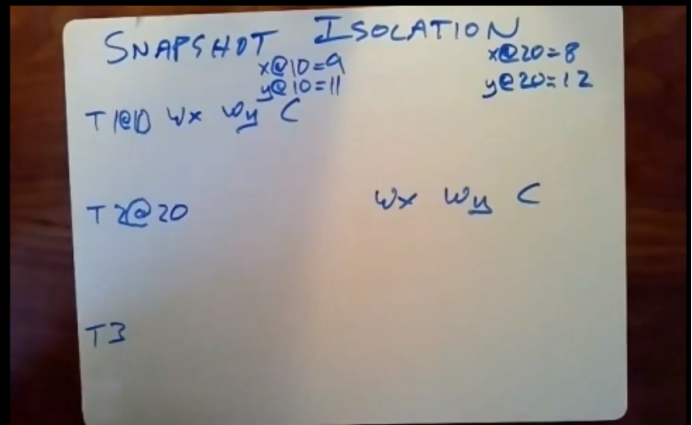 SNAPSHOT ISOLATION
x@10=9
y@10=11
x@20=8
y@20=12
T1@10 Wx Wy C
T2@20 Wx Wy C
T3